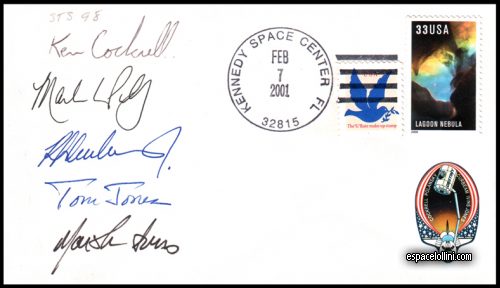 STS 98
Ken Cockrell
Mark Polansky
Tom Jones
Marsha Ivins
KENNEDY SPACE CENTER FL
FEB
7
2001
32815
The "G" Rate make-up stamp
33USA
LAGOON NEBULA
espacelollini.com